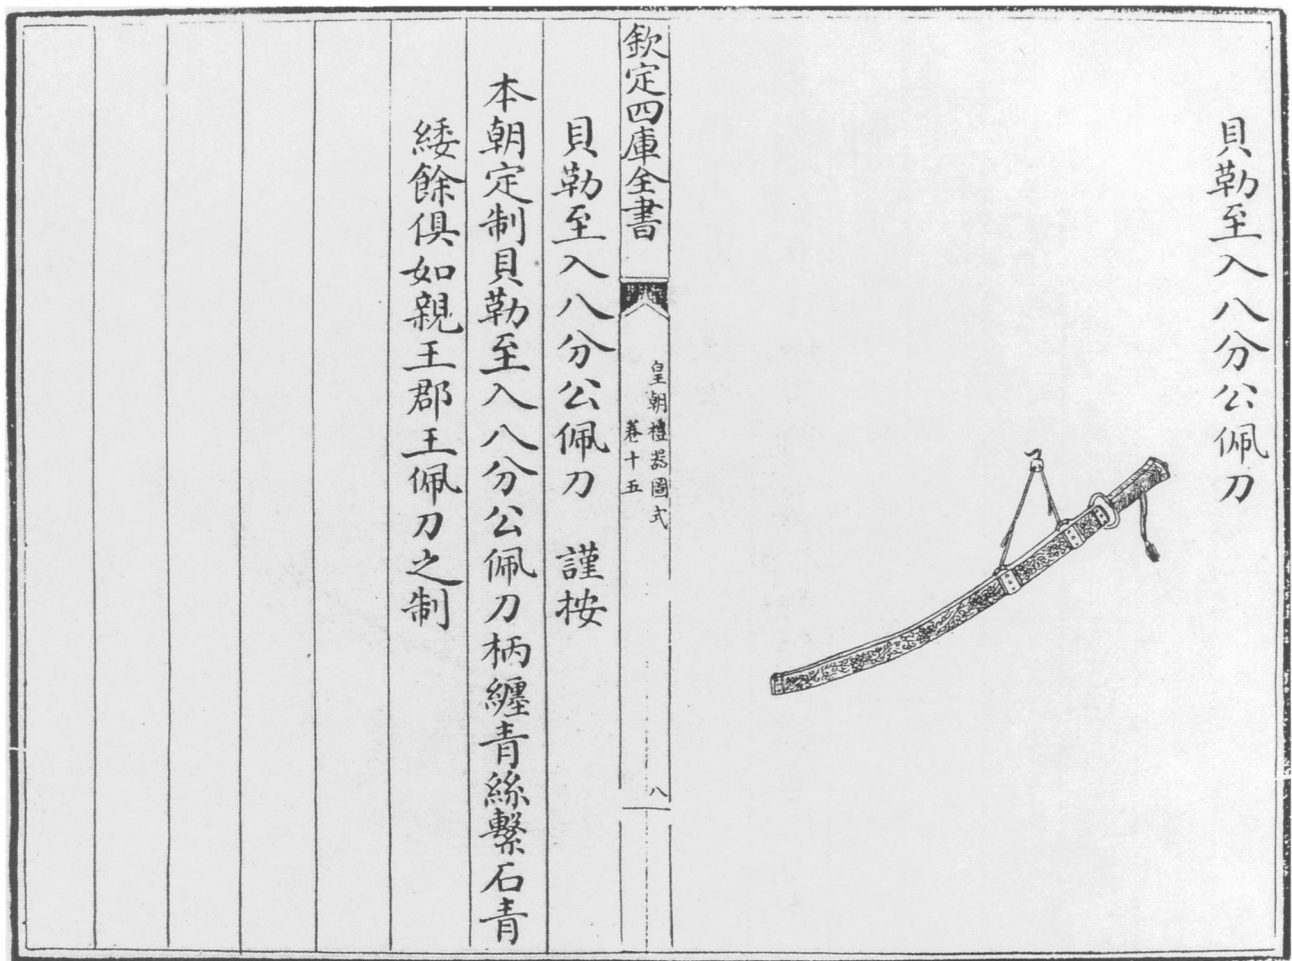 貝勒至入八分公佩刀
欽定四庫全書
皇朝禮器圖式
卷十五
八
貝勒至入八分公佩刀　謹按
本朝定制貝勒至入八分公佩刀柄纏青絲繫石青
緌餘俱如親王郡王佩刀之制